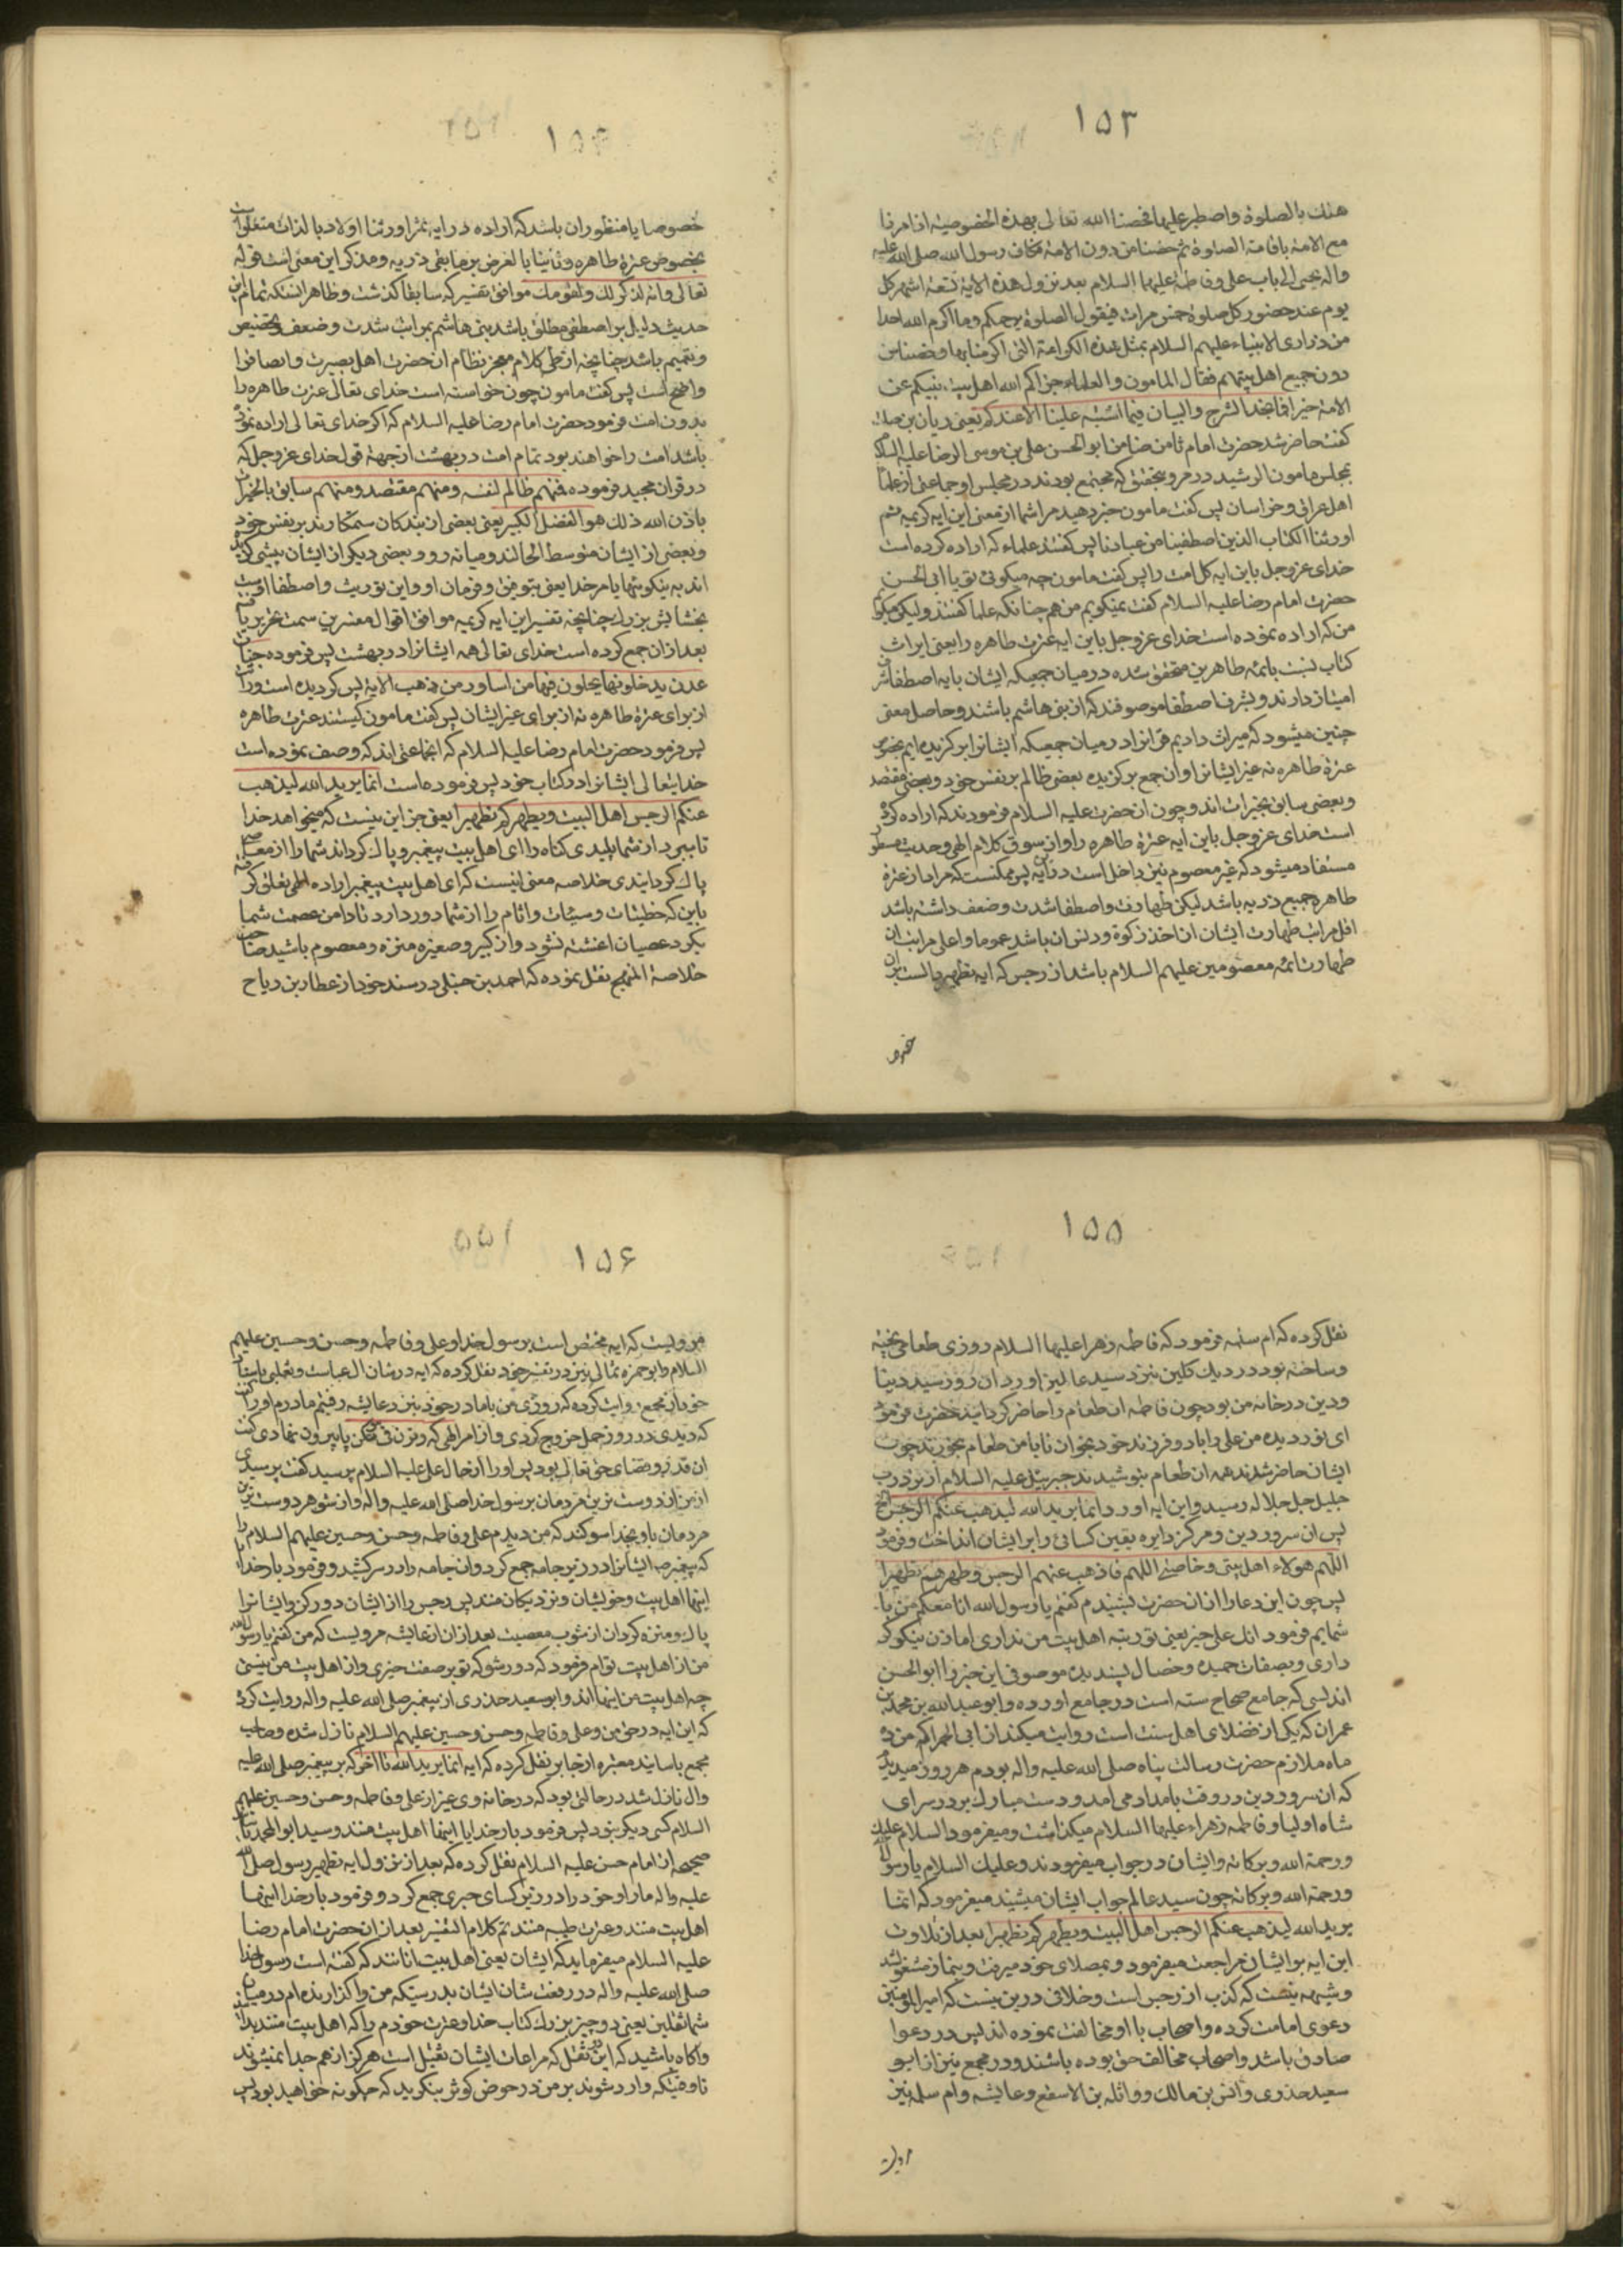 ۱۵۳
هناك بالصلوة واصطبر علیها فخصنا الله تعالی بهذه الخصوصیة اذ امرنا
مع الامة باقامة الصلوة ثم خصنا من دون الامة فکان رسول الله صلی الله علیه
واله یجیئ الی باب علی وفاطمة علیهما السلام بعد نزول هذه الایة تسعة اشهر کل
یوم عند حضور کل صلوة خمس مرات فیقول الصلوة یرحمکم الله وما اکرم الله احدا
من ذراری الانبیاء علیهم السلام بمثل هذه الکرامة التی اکرمنا بها وخصنا من
دون جمیع اهل بیتهم فقال المامون والعلماء جزاکم الله اهل بیت نبیکم عن
الامة خیرا فما نجد الشرح والبیان فیما اشتبه علینا الا عندکم یعنی ریان بن صلت
کفت حاضر شد حضرت امام ثامن ضامن ابو الحسن علی بن موسی الرضا علیه السلام
بمجلس مامون الرشید در مرو بتحقیق که مجتمع بودند در مجلس او جماعتی از علما
اهل عراق وخراسان پس کفت مامون خبر دهید مرا شما از معنی این ایه کریمه ثم
اورثنا الکتاب الذین اصطفینا من عبادنا پس کفتند علماء که اراده کرده است
خدای عز وجل باین ایه کل امت را پس کفت مامون چه میکوئی تو یا ابی الحسن
حضرت امام رضا علیه السلام کفت نمیکویم من هم چنانکه علما کفتند ولیکن میکویم
من که اراده نموده است خدای عز وجل باین ایه عترت طاهره را یعنی ایراث
کتاب نسبت بائمه طاهرین متحقق شده در میان جمعیکه ایشان بایه اصطفا از من
امتیاز دارند وبشرف اصطفا موصوفند که از بنی هاشم باشند وحاصل معنی
چنین میشود که میراث دادیم قرانرا در میان جمعیکه ایشانرا برکزیده ایم بخصوص
عترة طاهره نه غیر ایشانرا وان جمع برکزیده بعضی ظالم بر نفس خود وبعضی مقتصد
وبعضی سابق بخیرات اند وچون ان حضرت علیه السلام فرمودند که اراده کرده
است خدای عز وجل باین ایه عترة طاهره را وان سوق کلام الهی وحدیث مسطور
مستفاد میشود که غیر معصوم نیز داخل است در ایه پس ممکنست که مراد از عترة
طاهره جمیع ذریه باشد لیکن طهارت واصطفا شدت وضعف داشته باشد
اقل مراتب طهارت ایشان ان اخذ زکوة ودنس ان باشد عموما واعلی مراتب ان
طهارت ائمه معصومین علیهم السلام باشد از رجس که ایه تطهیر دالست بر ان
خصوصا
۱۵۴
خصوصا یا منظور ان باشد که اراده در ایه ثم اورثنا اولا وبالذات متعلق است
بخصوص عترة طاهره وثانیا بالغرض بر مابقی ذریه ومذکر این معنی است قوله
تعالی وانه لذکر لك ولقومك موافق تفسیر که سابقا کذشت وظاهر انستکه تمام این
حدیث دلیل بر اصطفی مطلق باشد بنی هاشم بمراتب شدت وضعف وتخصیص
وتعمیم باشد چنانچه از طی کلام معجز نظام ان حضرت اهل بصیرت وانصاف را
واضح است پس کفت مامون چون خواسته است خدای تعالی عترت طاهره را
بدون امت فرمود حضرت امام رضا علیه السلام که اکر خدای تعالی اراده نموده
باشد امت را خواهند بود تمام امت در بهشت از جهة قول خدای عز وجل که
در قران مجید فرموده فمنهم ظالم لنفسه ومنهم مقتصد ومنهم سابق بالخیرات
باذن الله ذلك هو الفضل الکبیر یعنی بعضی از بندکان ستمکارند بر نفس خود
وبعضی از ایشان متوسط الحالند ومیانه رو وبعضی دیکر از ایشان پیشی کیرنده
اند به نیکوئیها بامر خدا یعنی بتوفیق وفرمان او واین توریث واصطفا اوست
بخشایش بزرك چنانچه تفسیر این ایه کریمه موافق اقوال مفسرین سمت تحریر یافته
بعد از ان جمع کرده است خدای تعالی همه ایشانرا در بهشت پس فرموده جنات
عدن یدخلونها یحلون فیها من اساور من ذهب الایة پس کردیده است وراثت
از برای عترة طاهره نه از برای غیر ایشان پس کفت مامون کیستند عترت طاهره
پس فرمود حضرت امام رضا علیه السلام که انجماعتی اند که وصف نموده است
خدایتعالی ایشانرا در کتاب خود پس فرموده است انما یرید الله لیذهب
عنکم الرجس اهل البیت ویطهرکم تطهیرا یعنی جز این نیست که میخواهد خدا
تا ببرد از شما پلیدی کناه را ای اهل بیت پیغمبر وپاك کرداند شما را از معصیة
پاك کردانیدی خلاصه معنی انیست که ای اهل بیت پیغمبر اراده الهی تعلق کرفته
باین که خطیئات وسیئات واثام را از شما دور دارد تا دامن عصمت شما
بکرد عصیان اغشته نشود واز کبیر وصغیره منزه ومعصوم باشید صاحب
خلاصة المنهج نقل نموده که احمد بن حنبل در سند خود از عطار بن ریاح
۱۵۵
نقل کرده که ام سلمه فرمود که فاطمه زهرا علیها السلام روزی طعامی پخته
وساخته بود در دیك کلین نزد سید عالمیان اورد ان روز سید دنیا
ودین در خانه من بود چون فاطمه ان طعام را حاضر کردانید حضرت فرمود
ای نور دیده من علی را با دو فرزند خود بخوان تا با من طعام بخورند چون
ایشان حاضر شدند همه ان طعام بنوشیدند جبرئیل علیه السلام از نزد رب
جلیل جل جلاله رسید واین ایه اورد انما یرید الله لیذهب عنکم الرجس الخ
پس ان سرور دین ومرکز دایره یقین کسائی را بر ایشان انداخت وفرمود
اللهم هولاء اهل بیتی وخاصتی اللهم فاذهب عنهم الرجس وطهرهم تطهیرا
پس چون این دعا را از ان حضرت بشنیدم کفتم یا رسول الله انا معکم من با
شمایم فرمود انك علی خیر یعنی تو رتبه اهل بیت من نداری اما ذن نیکو کر
داری وبصفات حمیده وخصال پسندیده موصوفی این خبر را ابو الحسن
اندلسی که جامع صحاح سته است در جامع اورده وابو عبد الله بن محمد بن
عمران که یکی از فضلای اهل سنت است روایت میکند از ابی الحمرا که من نه
ماه ملازم حضرت رسالت پناه صلی الله علیه واله بودم هر روز میدیدم
که ان سرور دین در وقت بامداد می امد ودست مبارك بر در سرای
شاه اولیا وفاطمه زهراء علیهما السلام میکذاشت ومیفرمود السلام علیك
ورحمة الله وبرکاته وایشان در جواب میفرمودند وعلیك السلام یا رسول الله
ورحمة الله وبرکاته چون سید عالم جواب ایشان میشنید میفرمود که انما
یرید الله لیذهب عنکم الرجس اهل البیت ویطهرکم تطهیرا بعد از تلاوت
این ایه بر ایشان مراجعت میفرمود وبمصلای خود میرفت وبنماز مشغول میشد
وشبهه نیست که کذب از رجس است وخلافی درین نیست که امیر المومنین
دعوی امامت کرده واصحاب با او مخالفت نموده اند پس در دعوا
صادق باشد واصحاب مخالف حق بوده باشند ودر مجمع نیز از ابو
سعید خذری وانس بن مالك وواثله بن الاسقع وعایشه وام سلمه نیز
مرویست
۱۵۶
مرویست که ایه مختص است برسول خدا وعلی وفاطمه وحسن وحسین علیهم
السلام وابو حمزه ثمالی نیز در تفسیر خود نقل کرده که ایه در شان ال عباست وثعلبی باسناد
خود از مجمع روایت کرده که روزی من با مادر خود نزد عایشه رفتیم مادرم او را کفت
که دیدی در روز جمل خروج کردی واز امر الهی که وقرن فی بیوتکن پا بیرون نهادی کفت
ان قدر وقضای حق تعالی بود پس او را از حال علی علیه السلام پرسید کفت پرسیدی
از من از دوست ترین مردمان برسول خدا صلی الله علیه واله وان شوهر دوست ترین
مردمان باو بخدا سوکند که من دیدم علی وفاطمه وحسن وحسین علیهم السلام را
که پیغمبر ایشانرا در زیر جامه جمع کرد وان جامه را در سر کشید وفرمود بار خدایا
اینها اهل بیت وخویشان ونزدیکان منند پس رجس را از ایشان دور کن وایشانرا
پاك ومنزه کردان از شوب معصیت بعد از ان از عایشه مرویست که من کفتم یا رسول الله
من از اهل بیت توام فرمود که دور شو که تو بر صفت خیری واز اهل بیت من نیستی
چه اهل بیت من اینها اند وابو سعید خذری از پیغمبر صلی الله علیه واله روایت کرده
که این ایه در حق من وعلی وفاطمه وحسن وحسین علیهم السلام نازل شده وصاحب
مجمع باسانید معتبره از جابر نقل کرده که ایه انما یرید الله تا اخر که بر پیغمبر صلی الله علیه
واله نازل شد در حالتی بود که در خانه وی غیر از علی وفاطمه وحسن وحسین علیهم
السلام کسی دیکر نبود پس فرمود بار خدایا اینها اهل بیت منند وسید ابو الحمد باسناد
صحیحه از امام حسن علیه السلام نقل کرده که بعد از نزول ایه تطهیر رسول صلی الله
علیه واله ما را و خود را در زیر کسای خبری جمع کرد وفرمود بار خدا اینها
اهل بیت منند وعترت طیبه منند تم کلام التفسیر بعد از ان حضرت امام رضا
علیه السلام میفرماید که ایشان یعنی اهل بیت انانند که کفته است رسول خدا
صلی الله علیه واله در رفعت شان ایشان بدرستیکه من واکزارنده ام در میان
شما ثقلین یعنی دو چیز بزرك کتاب خدا وعترت خودم را که اهل بیت منند بدانید
واکاه باشید که این دو ثقل که مراعات ایشان ثقیل است هرکز از هم جدا نمیشوند
تا وقتیکه وارد شوند بر من در حوض کوثر بنکرید که چکونه خواهید بود پس